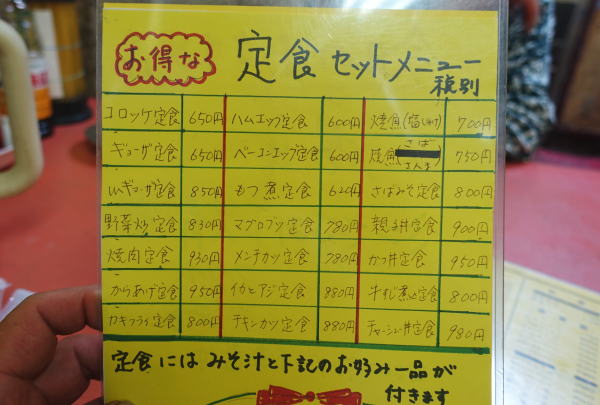 お得な 定食セットメニュー
税別
コロッケ定食 650円 ハムエッグ定食 600円 焼魚(塩じゃけ) 700円
ギョーザ定食 650円 ベーコンエッグ定食 600円 焼魚(さば さんま) 750円
Wギョーザ定食 850円 もつ煮定食 620円 さばみそ定食 800円
野菜炒定食 830円 マグロブツ定食 780円 親子丼定食 900円
焼肉定食 930円 メンチカツ定食 780円 かつ丼定食 950円
からあげ定食 950円 イカとアジ定食 880円 牛すじ煮込定食 800円
カキフライ定食 800円 チキンカツ定食 880円 チャーシュー丼定食 980円
定食には みそ汁と下記のお好み一品が
付きます